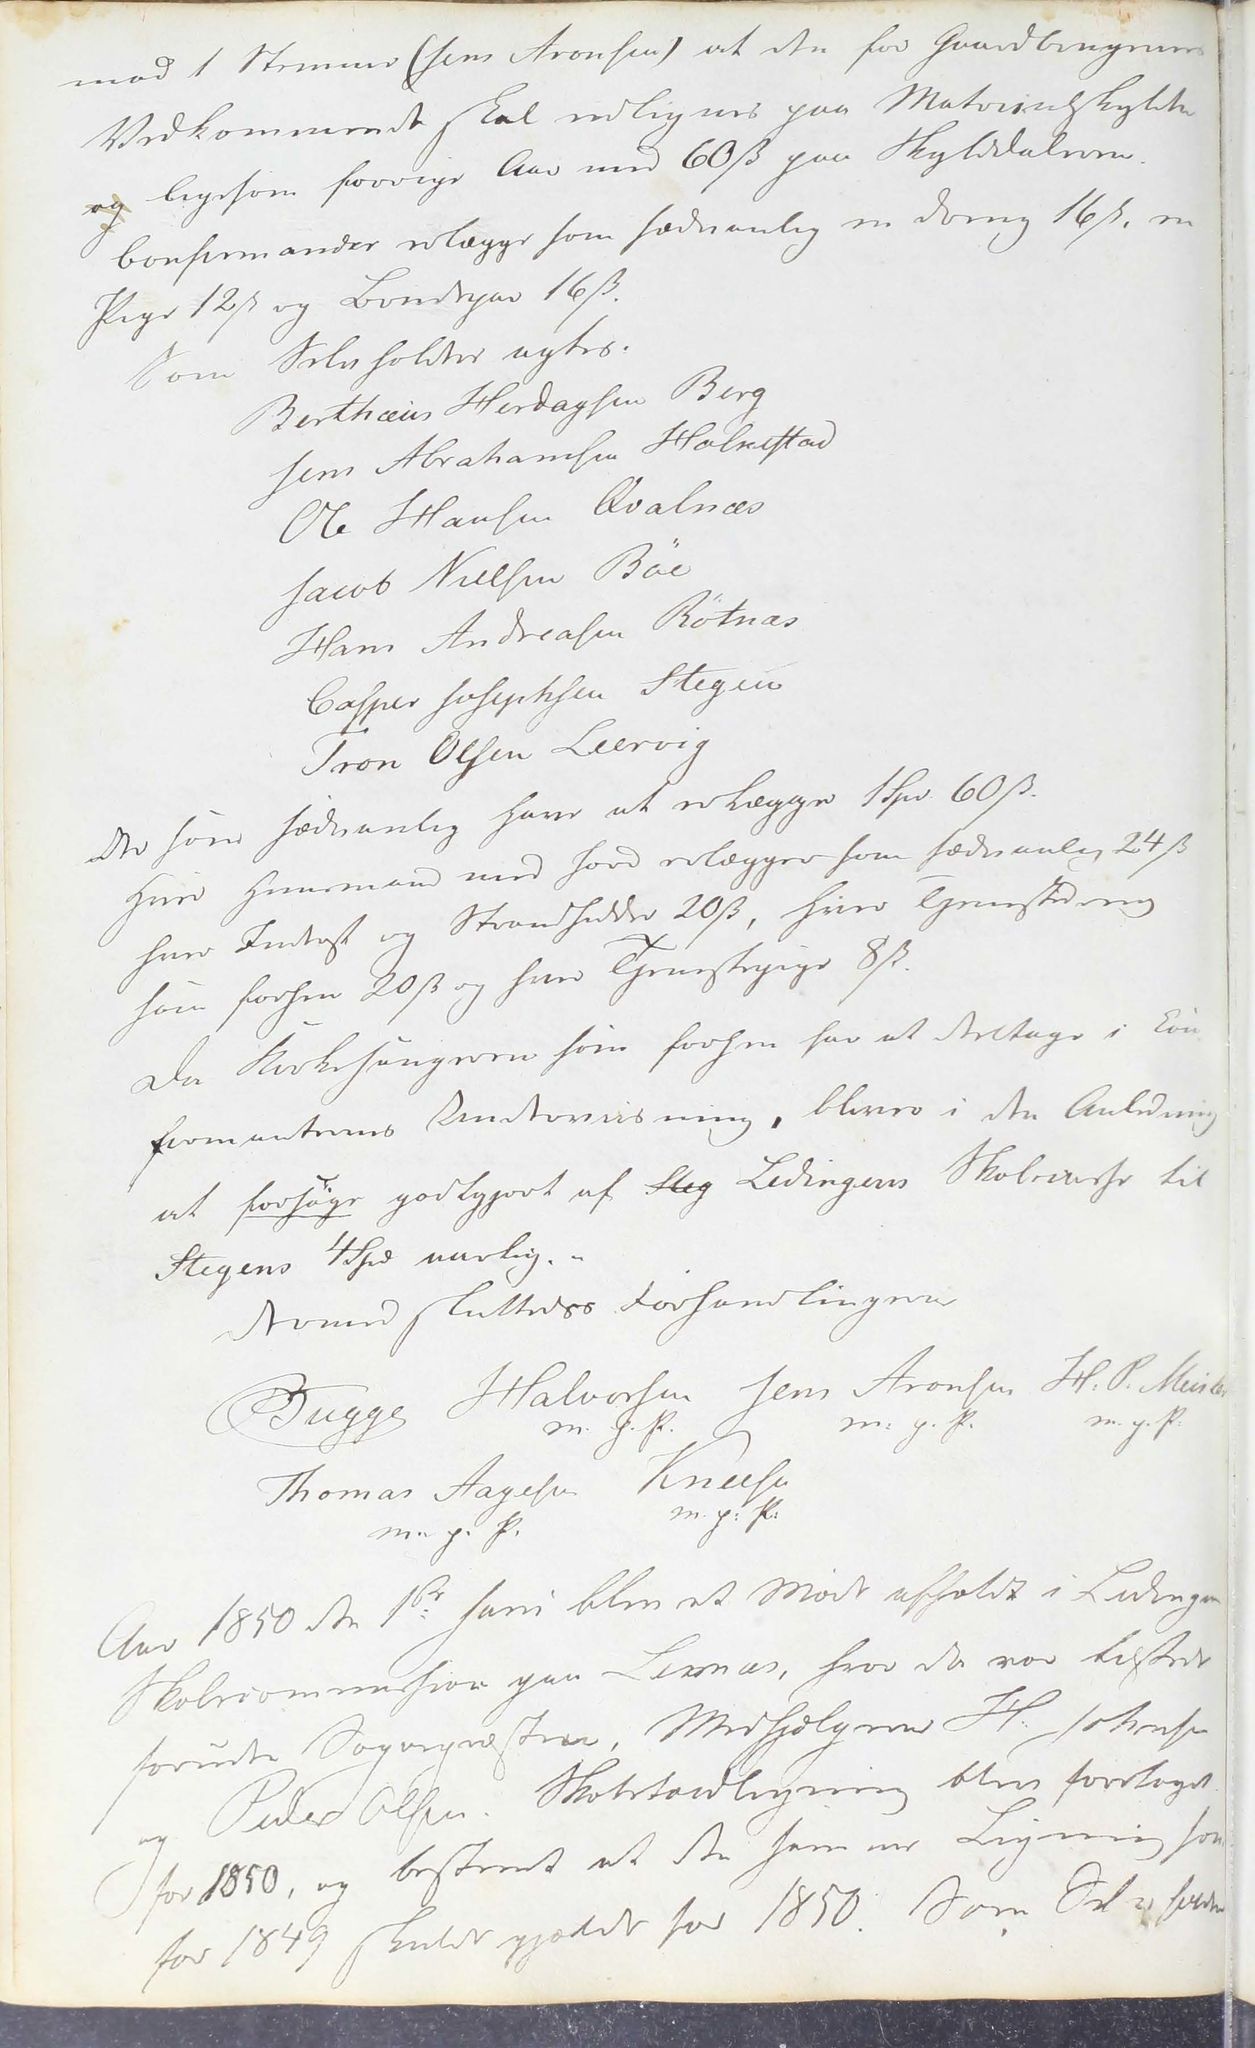 mod 1 Stemme (Jens Aronsen) at den for Gaardbrugernes
Vedkommende skal udlignes paa Matriculskylden
og ligesom forrige Aar med 60 ß paa Skylddaleren.
Confirmander erlægge som sædvanlig en Dreng 16 ß, en
Pige 12 ß og Brudepar 16 ß.
Som Selvholdere agtes.
Berthæus Herdagsen Berg
Jens Abrahamsen Holmstad
Ole Hansen Qvalnæs
Jacob Nielsen Böe
Hans Andreasen Rötnæs
Casper Josephsen Stegen
Tron Olsen Leervig
der som sædvanlig have at erlægge 1 Spd 60 ß.
Hver Huusmand med Jord erlægger som sædvanlig 24 ß
hver Inderst og Strandsidder 20 ß, hver Tjenestedreng
som forhen 20 ß og hver Tjenestepige 8 ß.
Da Kirkesangeren som forhen har at deltage i Con
firmanternes Underviisning, bliver i den Anledning
at forsøge godtgjort af Steg Lødingens Skolecasse til
Stegens 4 Spd aarlig. "
Dermed sluttedes Forhandlingerne
Bugge Halvorsen Jens Aronsen H. P. Meisler
m. p. P. m. p. P. m. p. P.
Thomas Aagesen Kneesen
m. p. P. m. p. P.
Aar 1850 den 1ste Juni blev et Møde afholdt i Lødingens
Skolecommission paa Lexnæs, hvor da var tilstede
foruden Sognepræsten, Medhjelperne H. Johnsen
og Peder Olsen. Skoletoldligning blev foretaget
for 1850, og bestemt at den samme Ligning som
for 1849 skulde gjælde for 1850. Som Selvholdere